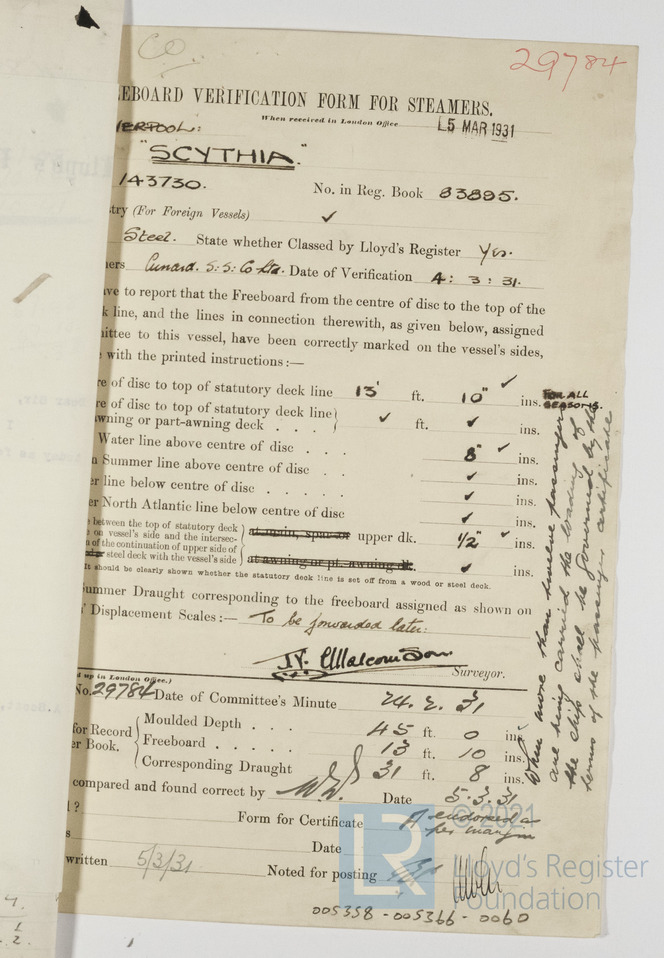 CO
29784
EBOARD VERIFICATION FORM FOR STEAMERS.
When received in London Office
L5 MAR 1931
VERPOOL:
"SCYTHIA."
143730.
No. in Reg. Book 83895.
try (For Foreign Vessels) ✓
Steel. State whether Classed by Lloyd's Register Yes.
ers Cunard. S.S. Co Ltd. Date of Verification 4 : 3 : 31.
ve to report that the Freeboard from the centre of disc to the top of the
k line, and the lines in connection therewith, as given below, assigned
ittee to this vessel, have been correctly marked on the vessel's sides,
with the printed instructions :—
re of disc to top of statutory deck line 13' ft. 10" ✓ ins.
FOR ALL
SEASONS.
re of disc to top of statutory deck line
wning or part-awning deck . . . ✓ ft. ✓ ins.
Water line above centre of disc . . . 8" ✓ ins.
n Summer line above centre of disc . . ✓ ins.
er line below centre of disc . . . . . ✓ ins.
er North Atlantic line below centre of disc ✓ ins.
e between the top of statutory deck
e on vessel's side and the intersec-
n of the continuation of upper side of
steel deck with the vessel's side
at main, spar or upper dk. ½" ✓ ins.
at awning or pt. awning dk. ✓ ins.
It should be clearly shown whether the statutory deck line is set off from a wood or steel deck.
ummer Draught corresponding to the freeboard assigned as shown on
' Displacement Scales :— To be forwarded later:
J. Malcomson
Surveyor.
When more than twelve passengers
are being carried the loading of
the ship shall be governed by the
terms of the passenger certificate
d up in London Office.)
No. 29784 Date of Committee's Minute 24. 2. 31
for Record
er Book.
Moulded Depth . . . 45 ft. 0 ins.
Freeboard . . . . . 13 ft. 10 ins.
Corresponding Draught 31 ft. 8 ins.
compared and found correct by Date 5.3.31
l ?
Form for Certificate A endorsed as
per margin
s
Date
written 5/3/31 Noted for posting
© 2021
LR
Lloyd's Register
Foundation
005358 - 005366 - 0060